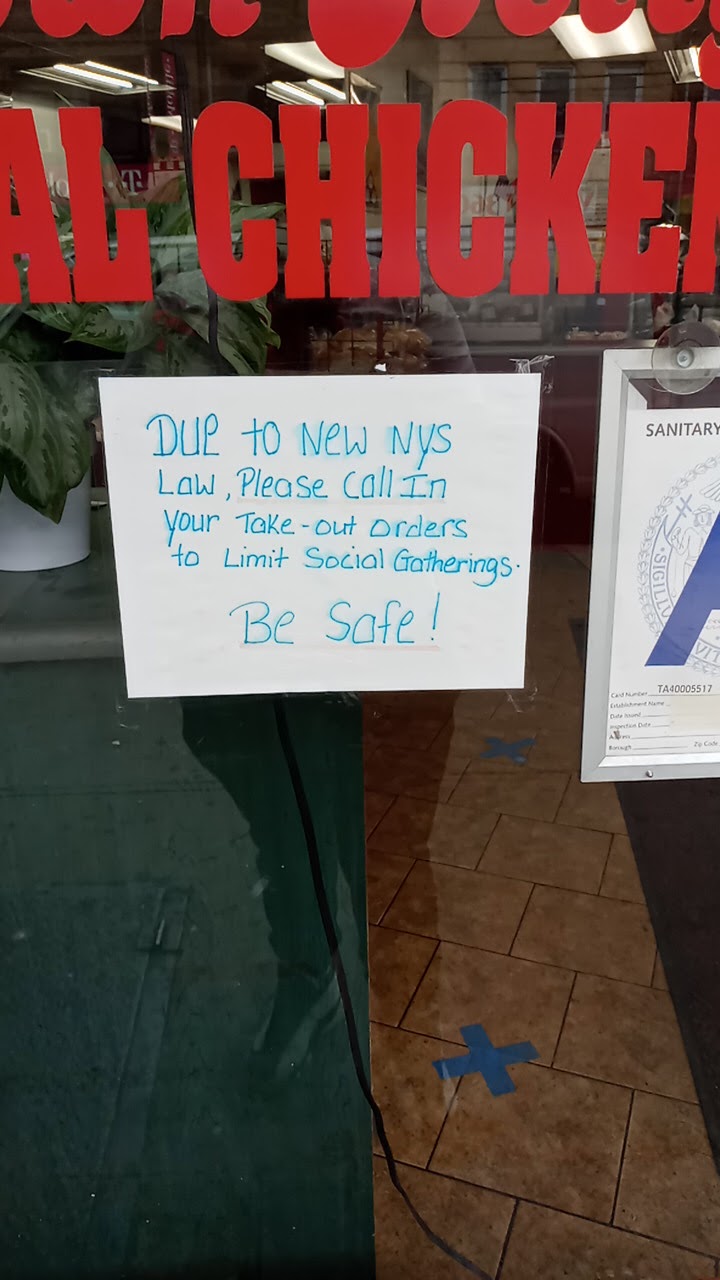 AL CHICKEN
DUE to New NYS
Law, Please Call In
your Take-out orders
to Limit Social Gatherings.
Be Safe!
SANITARY
SIGILLU
A
Card Number TA40005517
Establishment Name
Date Issued
Inspection Date
Address
Borough Zip Code